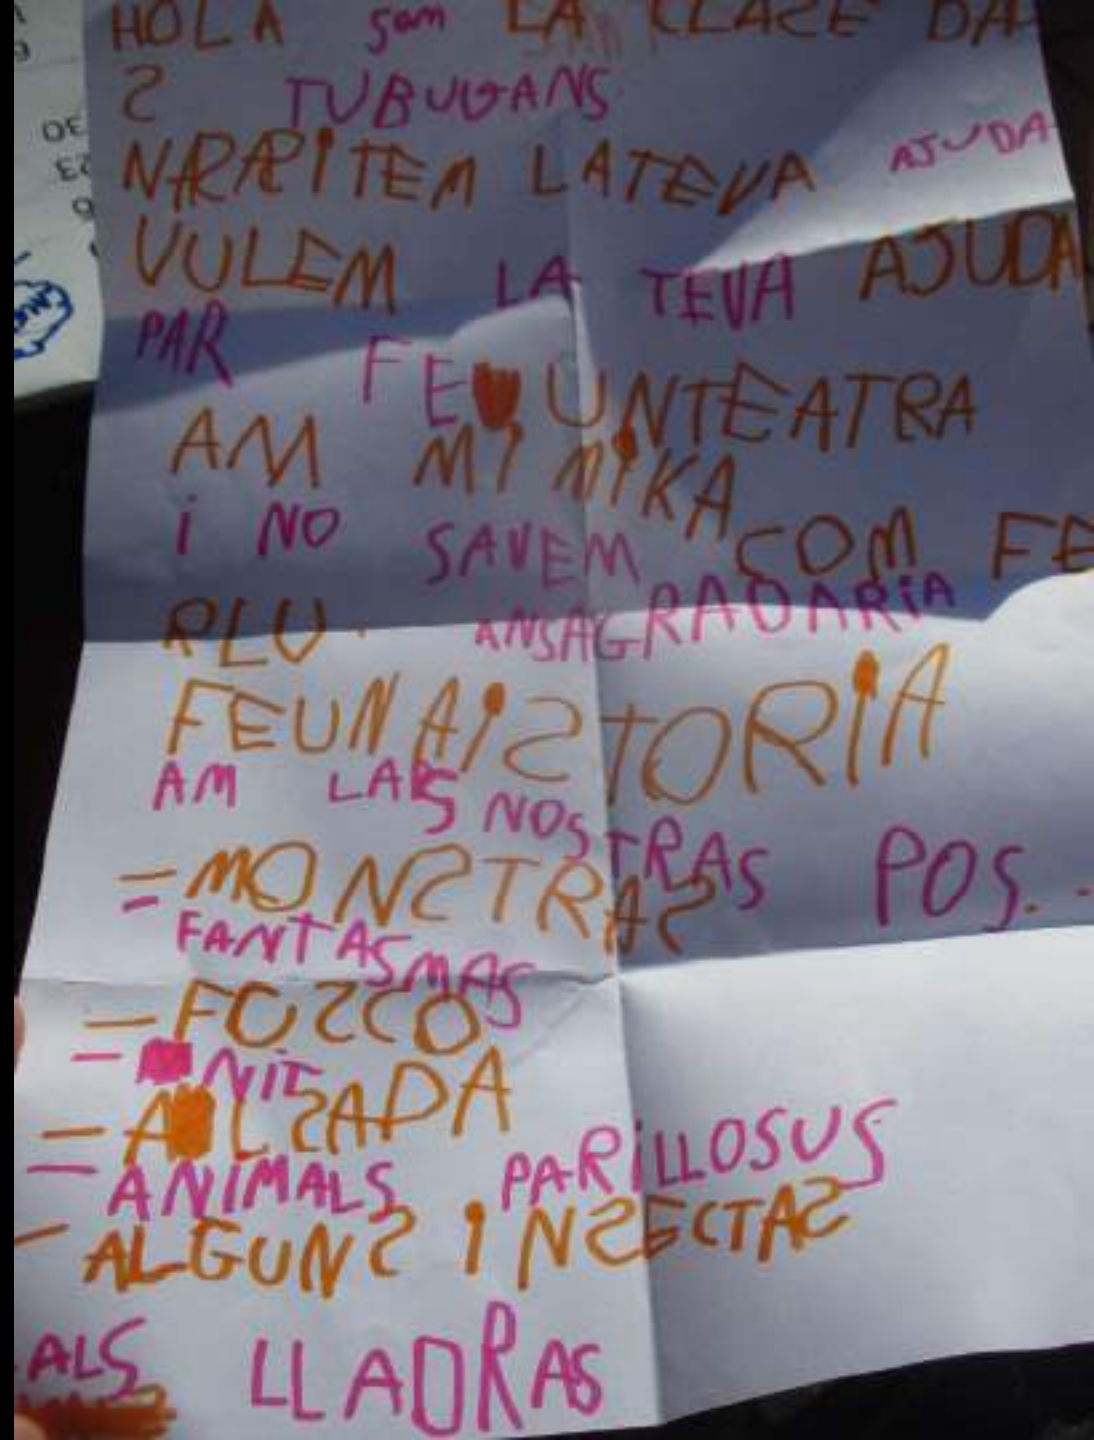 HOLA som LA CLAZE DA
S TUBUGANS
NARAITEM LATEVA AJUDA
VULEM LA TEVA AJUDA
PAR FE UNTEATRA
AM MIMIKA
i NO SAVEM COM FE
RLU. ANSAGRADARIA
FEUNAISTORIA
AM LAS NOSTRAS POS...
= MONSTRAS
FANTASMAS
- FOSCO
- NIT
- ALSADA
- ANIMALS PARILLOSUS
- ALGUNS INSECTAS
ALS LLADRAS